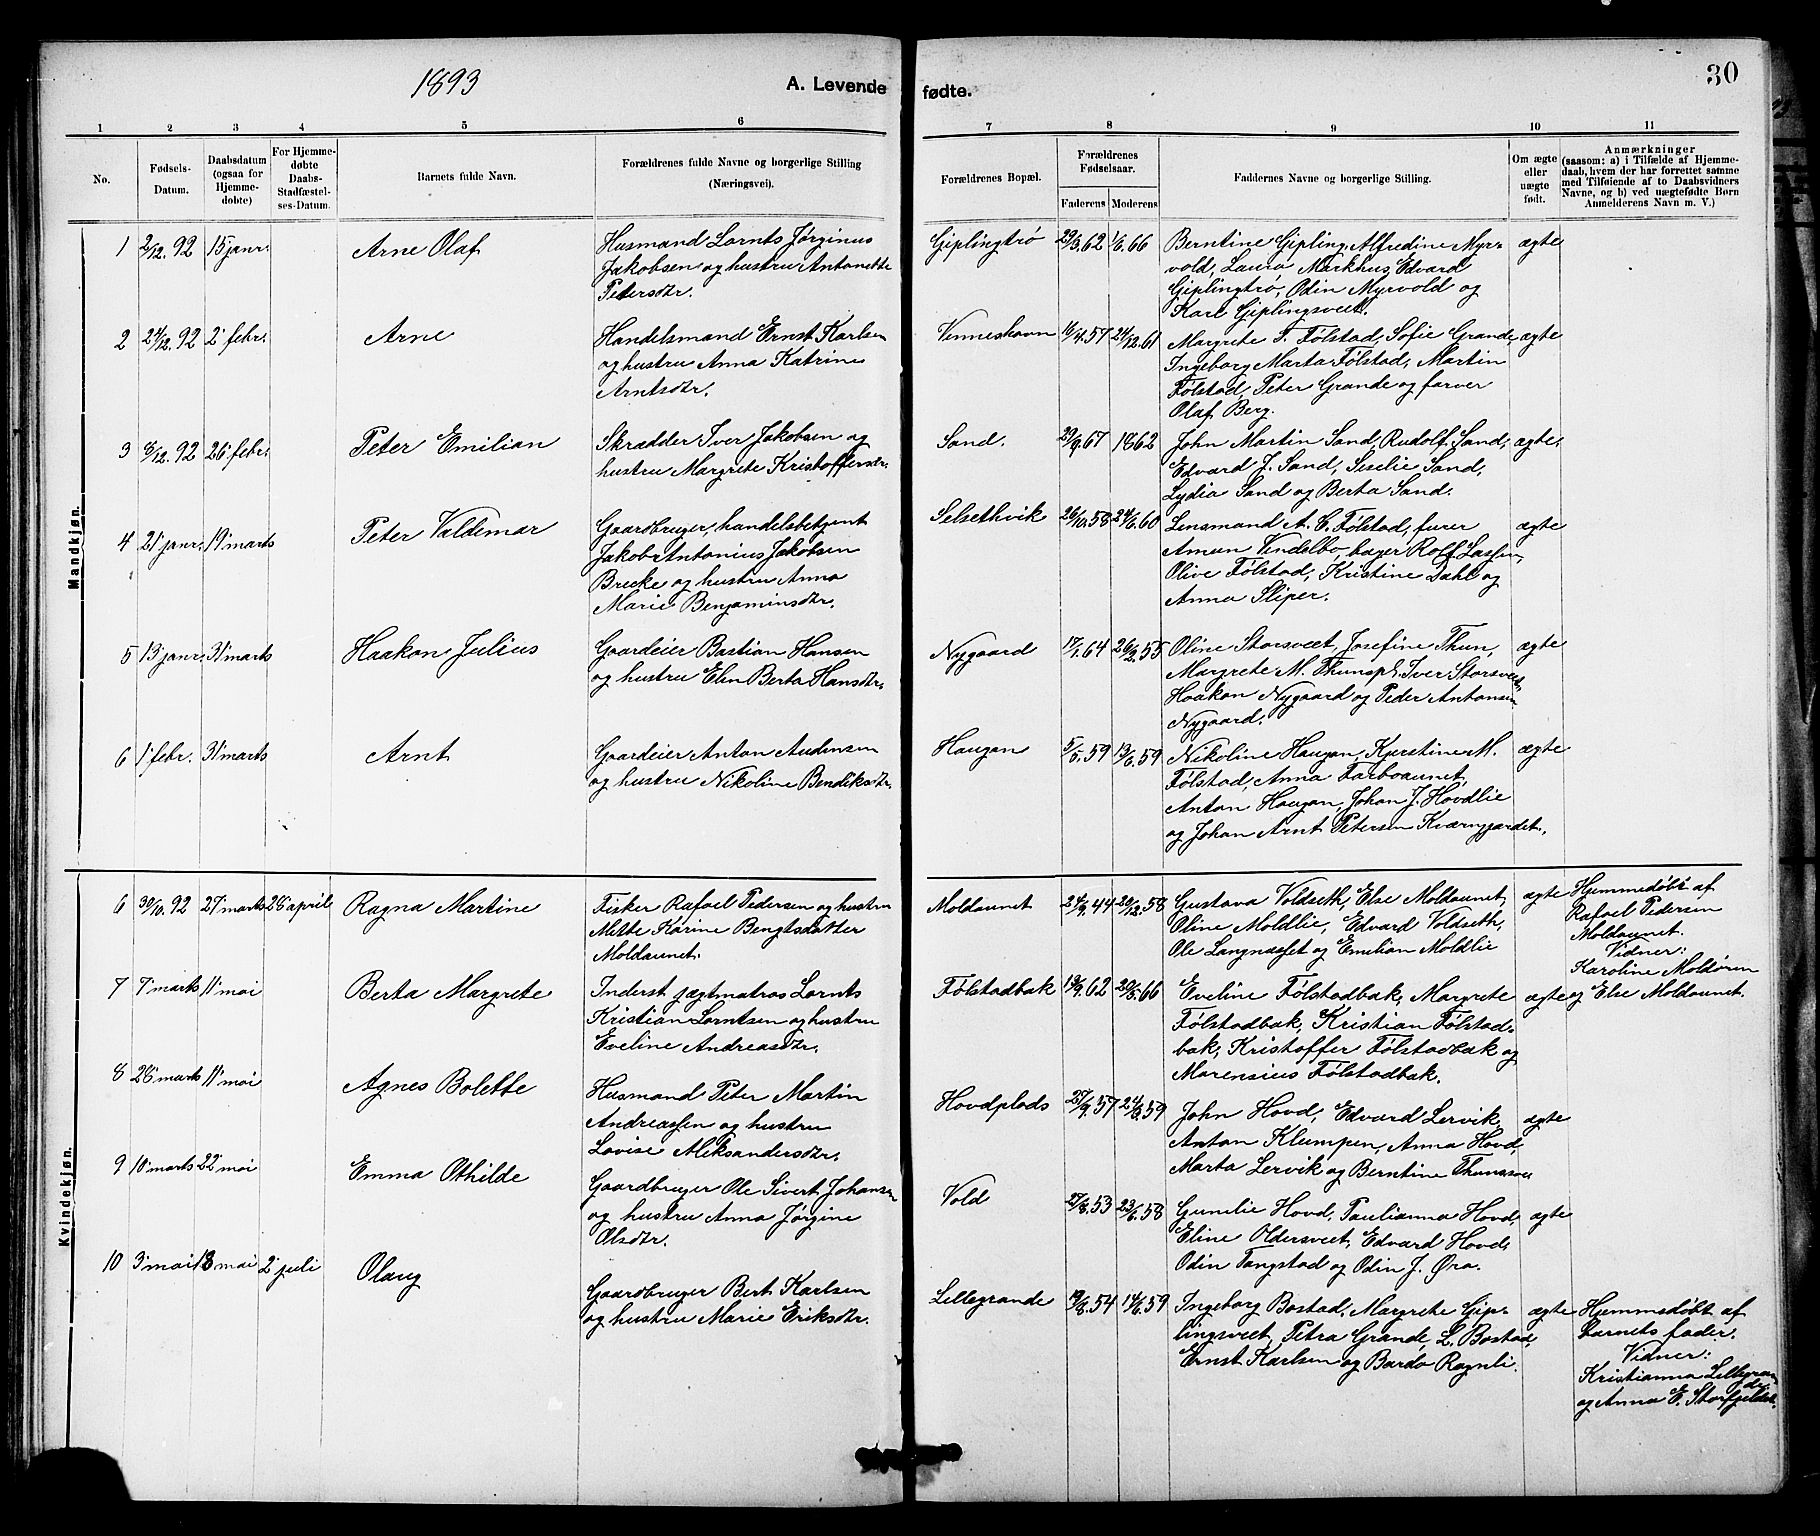 1893
A. Levende fødte.
30
1 2 3 4 5 6 7 8 9 10 11
No.
Fødsels-Datum.
Daabsdatum (ogsaa for Hjemmedøbte)
For Hjemmedøbte Daabs-Stadfæstelses-Datum.
Barnets fulde Navn.
Forældrenes fulde Navne og borgerlige Stilling (Næringsvei).
Forældrenes Bopæl.
Forældrenes Fødselsaar.
Faderens Moderens
Faddernes Navne og borgerlige Stilling.
Om ægte eller uægte født.
Anmærkninger
(saasom: a) i Tilfælde af Hjemmedaab, hvem der har forrettet samme med Tilføiende af to Daabsvidners Navne, og b) ved uægtefødte Børn Anmelderens Navn m. V.)
Mandkjøn.
1 2/12. 92 15 janr. Arne Olaf
Husmand Lornts Jørginus
Jakobsen og hustru Antonette
Petersdtr.
Giplingtrø 29/3.62 1/6.66
Berntine Gipling, Alfredine Myr-
vold, Laura Markhus, Edvard
Giplingtrø, Odin Myrvold og
Karl Giplingsveet.
ægte
2 24/12. 92 2' febr. Arne
Handelsmand Ernst Karlsen
og hustru Anna Katrine
Arntsdtr.
Venneshavn 16/4.57 24/12.61
Margrete T. Følstad, Sofie Grande,
Ingeborg Marta Følstad, Martin
Følstad, Peter Grande og farver
Olaf Berg.
ægte
3 8/12. 92 26' febr. Peter Emilian
Skrædder Iver Jakobsen og
hustru Margrete Kristoffersdtr.
Sand. 29/9.67 1862
John Martin Sand, Rudolf Sand,
Edvard J. Sand, Sselie Sand,
Lydia Sand og Berta Sand.
ægte.
4 21' janr. 19' marts Peter Valdemar
Gaardbruger, handelsbetjent
Jakob Antonius Jakobsen
Brecke og hustru Anna
Marie Benjaminsdtr.
Selsethvik 26/10.58 24/6.60
Lensmand A. C. Følstad, furer
Amun Vindelbo, bager Rolf Lassen,
Olive Følstad, Kristine Dahl og
Anna Sliper.
ægte
5 13' janr. 31' marts Haakon Julius
Gaardeier Bastian Hansen
og hustru Elen Berta Hansdtr.
Nygaard 17/1.64 26/2.55
Oline Storsveet, Josefine Thun,
Margrete M. Thunspl. Iver Storsveet,
Haakon Nygaard og Peder Antonsen
Nygaard.
ægte
6 1' febr. 31' marts Arnt
Gaardeier Anton Audensen
og hustru Nikoline Bendiksdtr.
Haugan 5/5.59 13/6.59
Nikoline Haugan, Kjerstine M.
Følstad, Anna Farboaunet,
Anton Haugan, Johan J. Hovdlie
og Johan Arnt Petersen Kværngjærdet.
ægte
Kvindekjøn.
6 30/10. 92 27' marts 28' april Ragna Martine
Fisker Rafael Pedersen og hustru
Mette Karine Bengtsdatter
Moldaunet.
Moldaunet 24/9.44 20/12.58
Gustava Voldseth, Else Moldaunet,
Oline Moldlie, Edvard Voldseth,
Ole Langnæsset og Emilian Moldlie
ægte
Hjemmedøbt af
Rafael Pedersen
Moldaunet.
Vidner:
Karoline Moldøren
og Else Moldaunet.
7 7' marts 11' mai Berta Margrete
Inderst jægtmatros Lornts
Kristian Lorntsen og hustru
Eveline Andreasdtr.
Følstadbak 19/9.62 20/5.66
Eveline Følstadbak, Margrete
Følstadbak, Kristian Følstad-
bak, Kristoffer Følstadbak og
Marensius Følstadbak.
ægte
8 28' marts 11' mai Agnes Bolette
Husmand Peter Martin
Andreassen og hustru
Lovise Aleksandersdtr.
Hovdplads 27/9.57 24/3.59
John Hovd, Edvard Lervik,
Anton Klumpen, Anna Hovd,
Marta Lervik og Berntine
ægte
9 10' marts 22' mai Emma Othilde
Gaardbruger Ole Sivert Johansen
og hustru Anna Jørgine
Olsdtr.
Vold 27/8.53 23/6.58
Gunelie Hovd, Paulianna Hovd,
Eline Oldersveet, Edvard Hovd,
Odin Tangstad og Odin J. Øra.
ægte
10 3' mai 13 mai 2' juli Olaug
Gaardbruger Bert Karlsen
og hustru Marie Eriksdtr.
Lillegrande 19/8.54 14/6.59
Ingeborg Bostad, Margrete Gip-
lingsveet, Petra Grande, L. Bostad,
Ernst Karlsen og Bardo Ragnli.
ægte
Hjemmedøbt af
Barnets fader.
Vidner:
Kristianna Lillegran-
de
og Anna E. Storfjeldet.